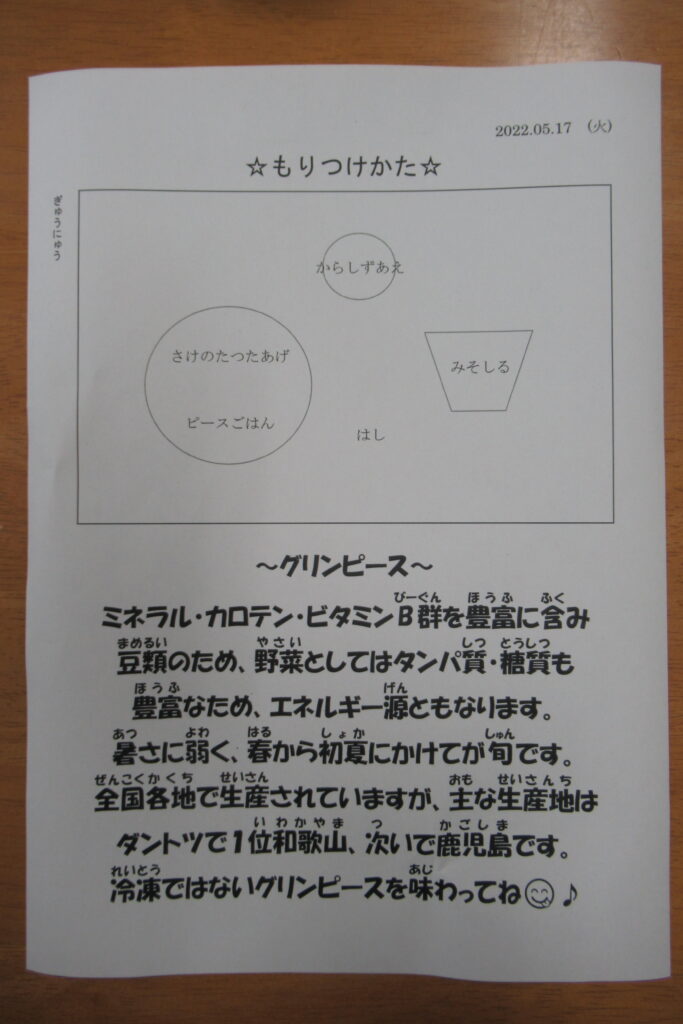 2022.05.17 (火)
☆もりつけかた☆
ぎゅうにゅう
からしずあえ
さけのたつたあげ
みそしる
ピースごはん
はし
～グリンピース～
びーぐん ほうふ ふく
ミネラル・カロテン・ビタミンB群を豊富に含み
まめるい やさい しつ とうしつ
豆類のため、野菜としてはタンパ質・糖質も
ほうふ げん
豊富なため、エネルギー源ともなります。
あつ よわ はる しょか しゅん
暑さに弱く、春から初夏にかけてが旬です。
ぜんこくかくち せいさん おも せいさんち
全国各地で生産されていますが、主な生産地は
いわかやま つ かごしま
ダントツで1位和歌山、次いで鹿児島です。
れいとう あじ
冷凍ではないグリンピースを味わってね😋♪